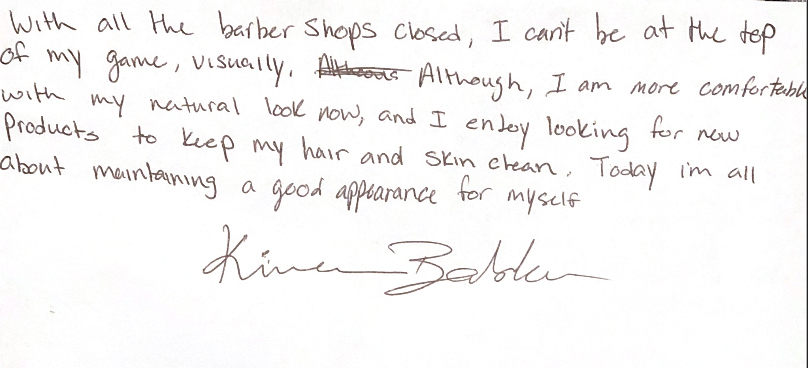 With all the barber shops closed, I can't be at the top
of my game, visually. Although, I am more comfortable
with my natural look now, and I enjoy looking for new
Products to keep my hair and skin clean. Today i'm all
about maintaining a good appearance for myself